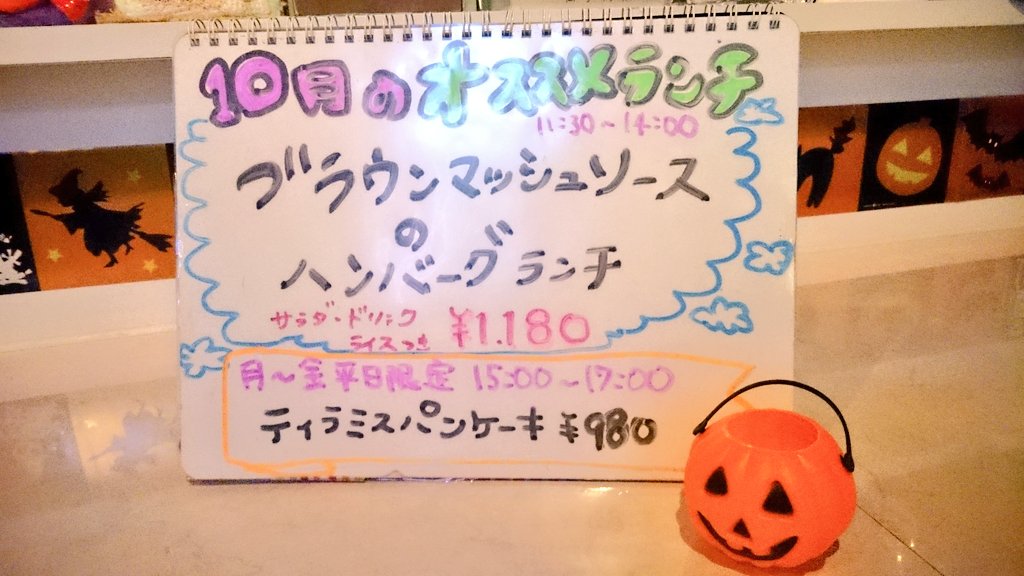 10月のオススメランチ
11:30~14:00
ブラウンマッシュソース
の
ハンバーグランチ
サラダ・ドリンク
ライスつき
¥1.180
月~金平日限定 15:00~17:00
ティラミスパンケーキ ¥980